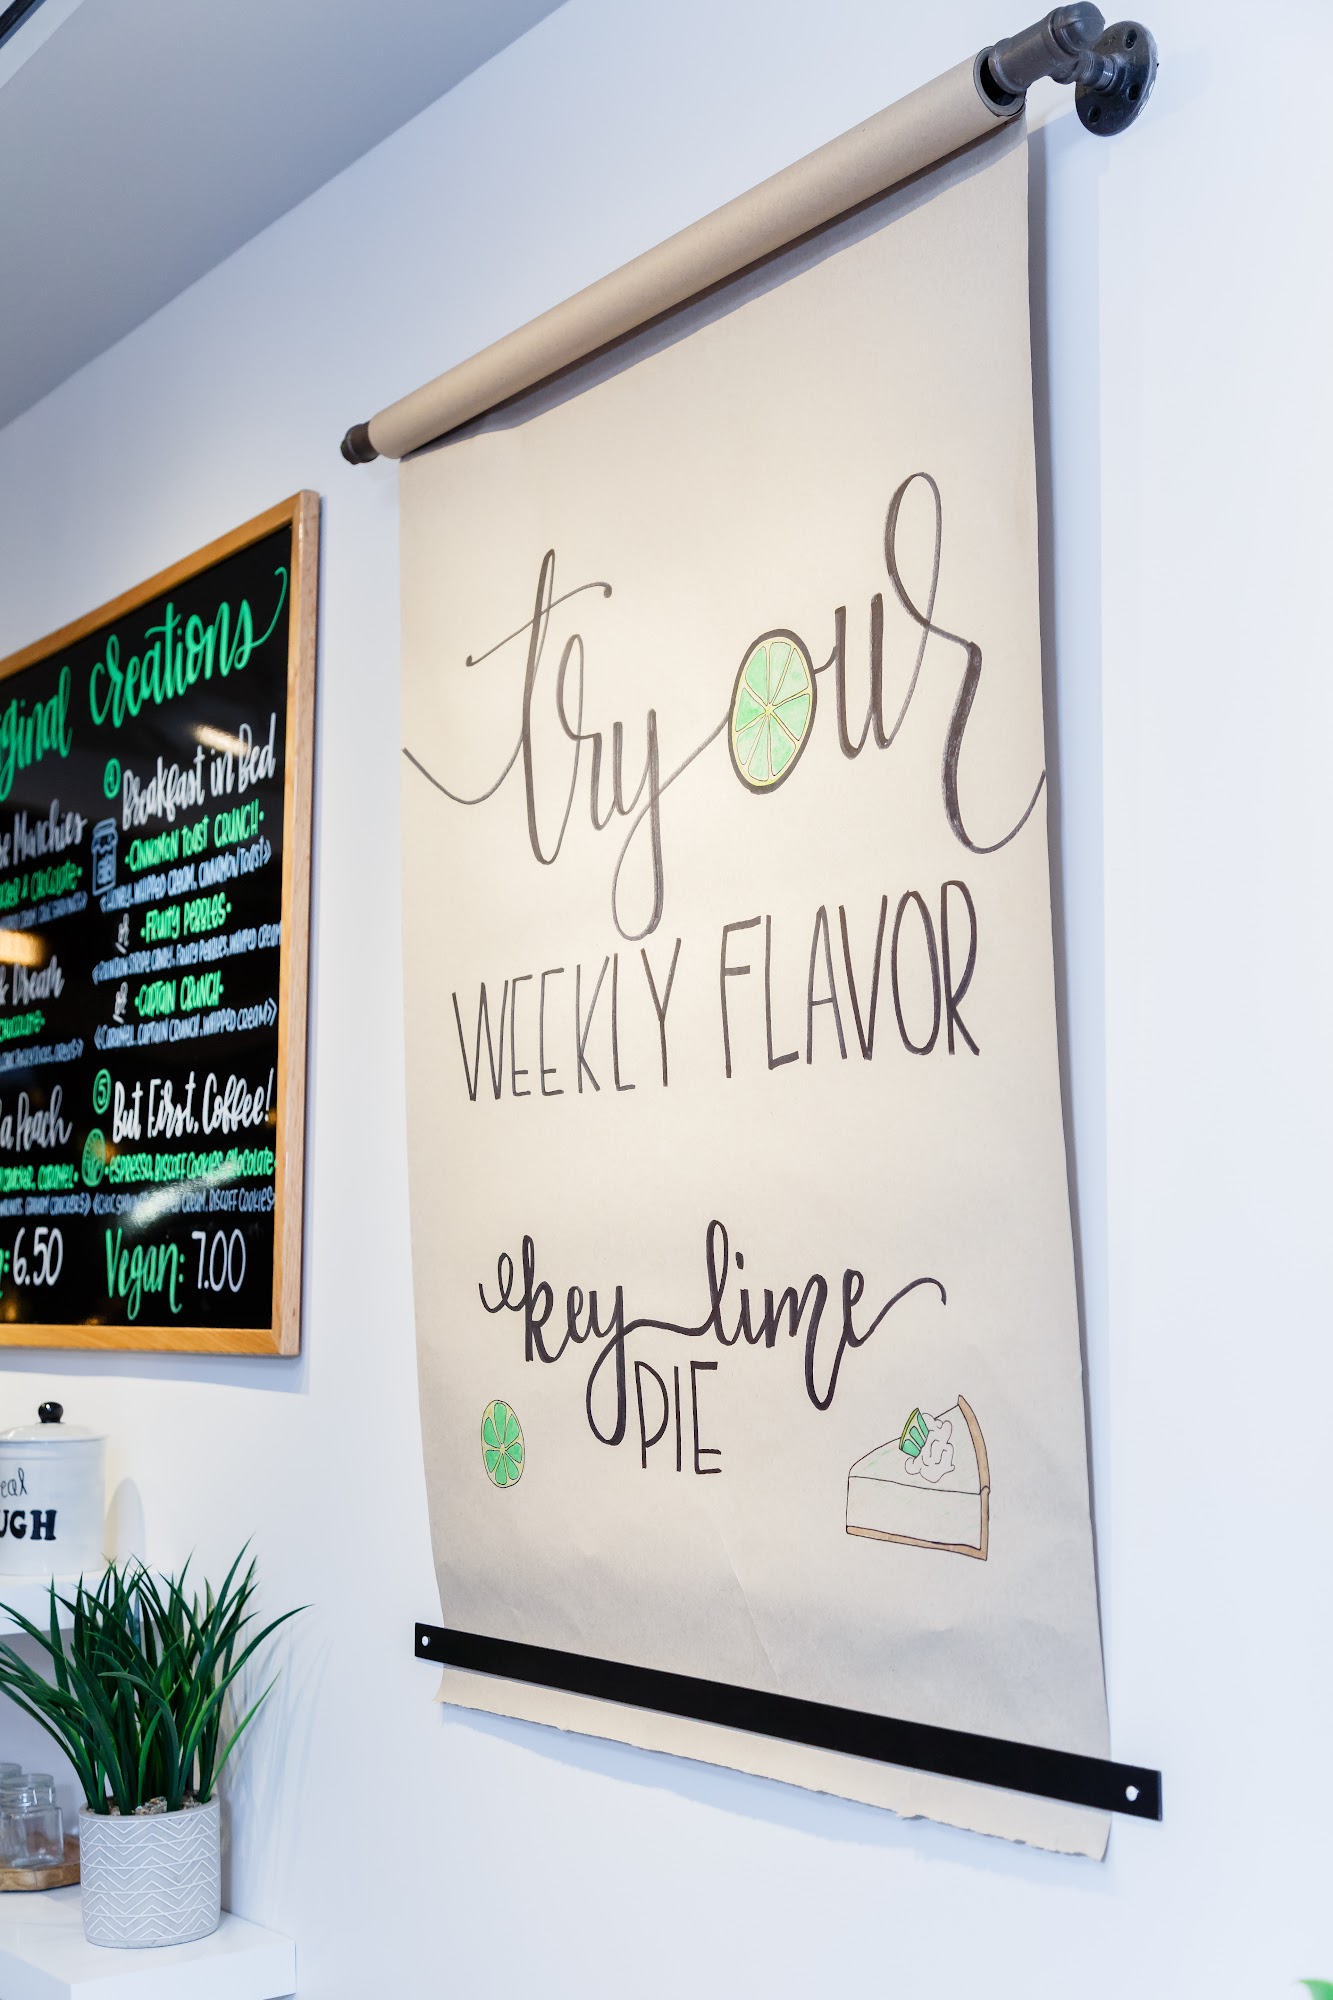 creations
4 Breakfast in Bed
• CINNAMON TOAST CRUNCH •
<HONEY, WHIPPED CREAM, CINNAMON TOAST>
or • FRUITY PEBBLES •
FRUITY PEBBLES, WHIPPED CREAM
or • CAPTAIN CRUNCH •
<CARAMEL, CAPTAIN CRUNCH, WHIPPED CREAM>
Peach
5 But First, Coffee!
• ESPRESSO, BISCOFF COOKIES, CHOCOLATE
CREAM, BISCOFF COOKIES>
6.50 Vegan: 7.00
try our
WEEKLY FLAVOR
key lime
PIE
UGH